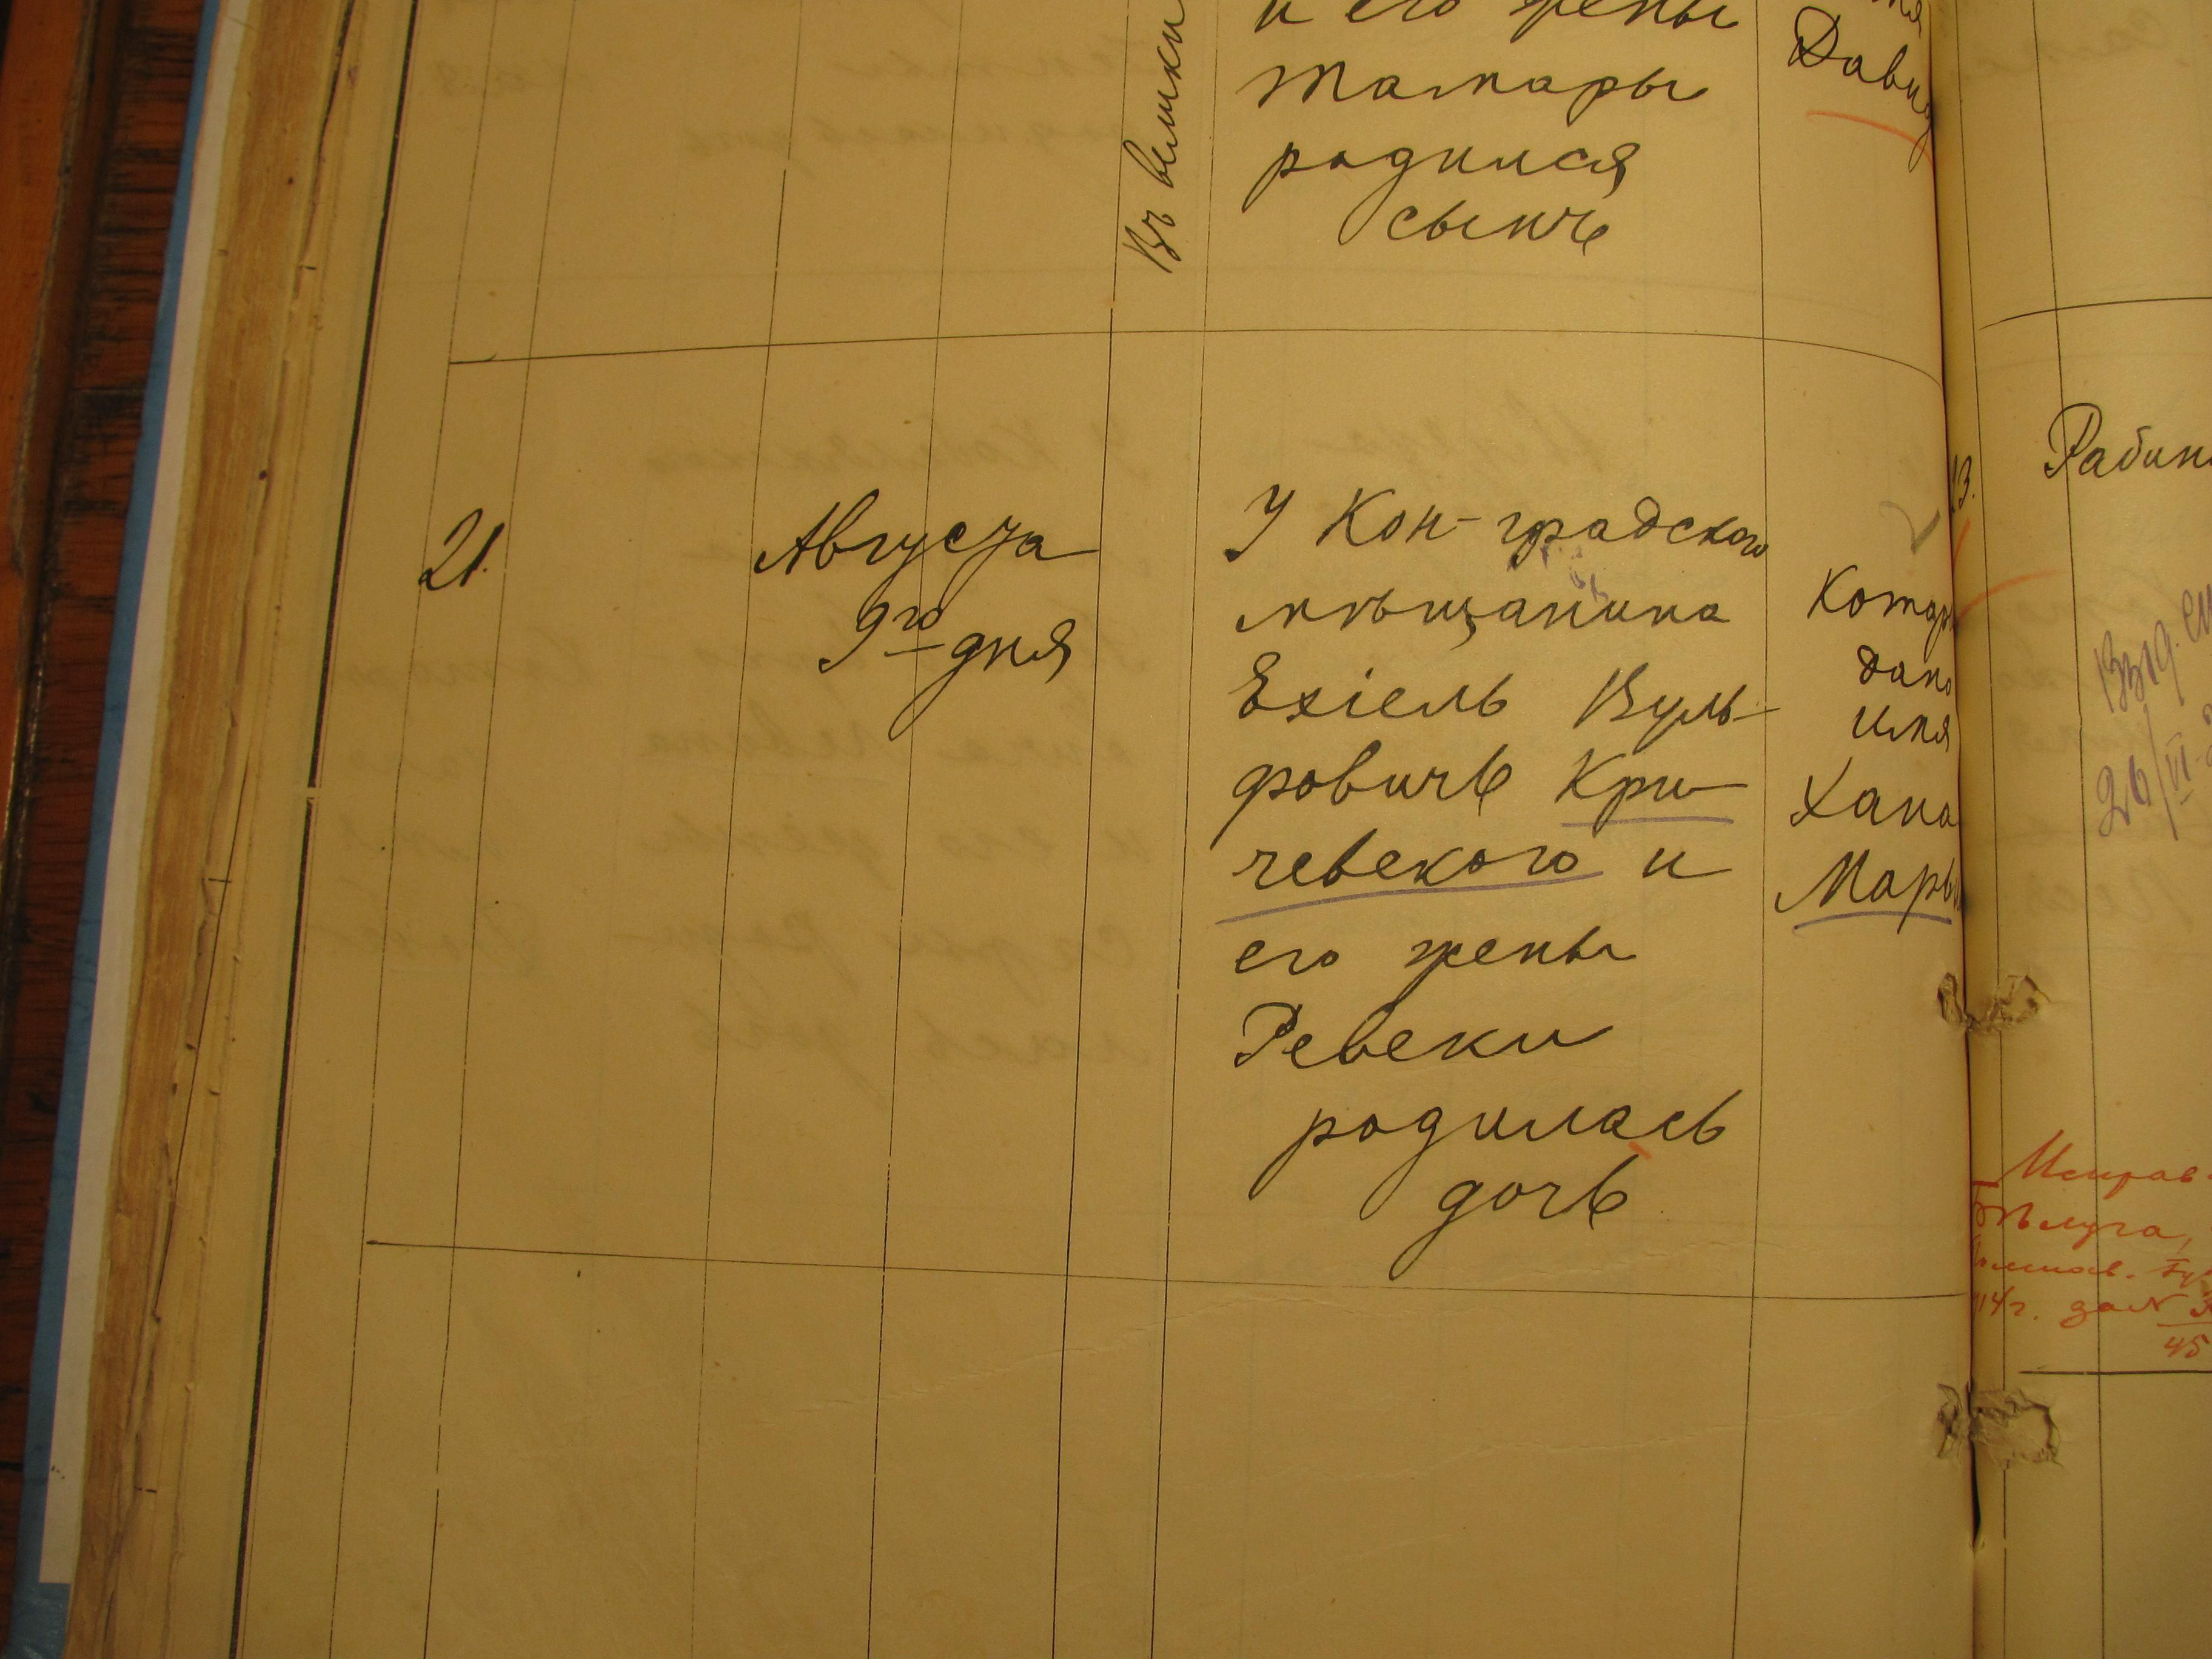 и его жены
Тамары
родился
сынъ
Въ велики
Дави
21.
Августа
9го дня
У Кон-градского
мѣщанина
Ехіель Вуль-
фовичъ Кри-
чевского и
его жены
Ревеки
родилась
дочь
дано
имя
Хана
Марь
13.
26/VI
Бѣлуга,
14 г. за №
45